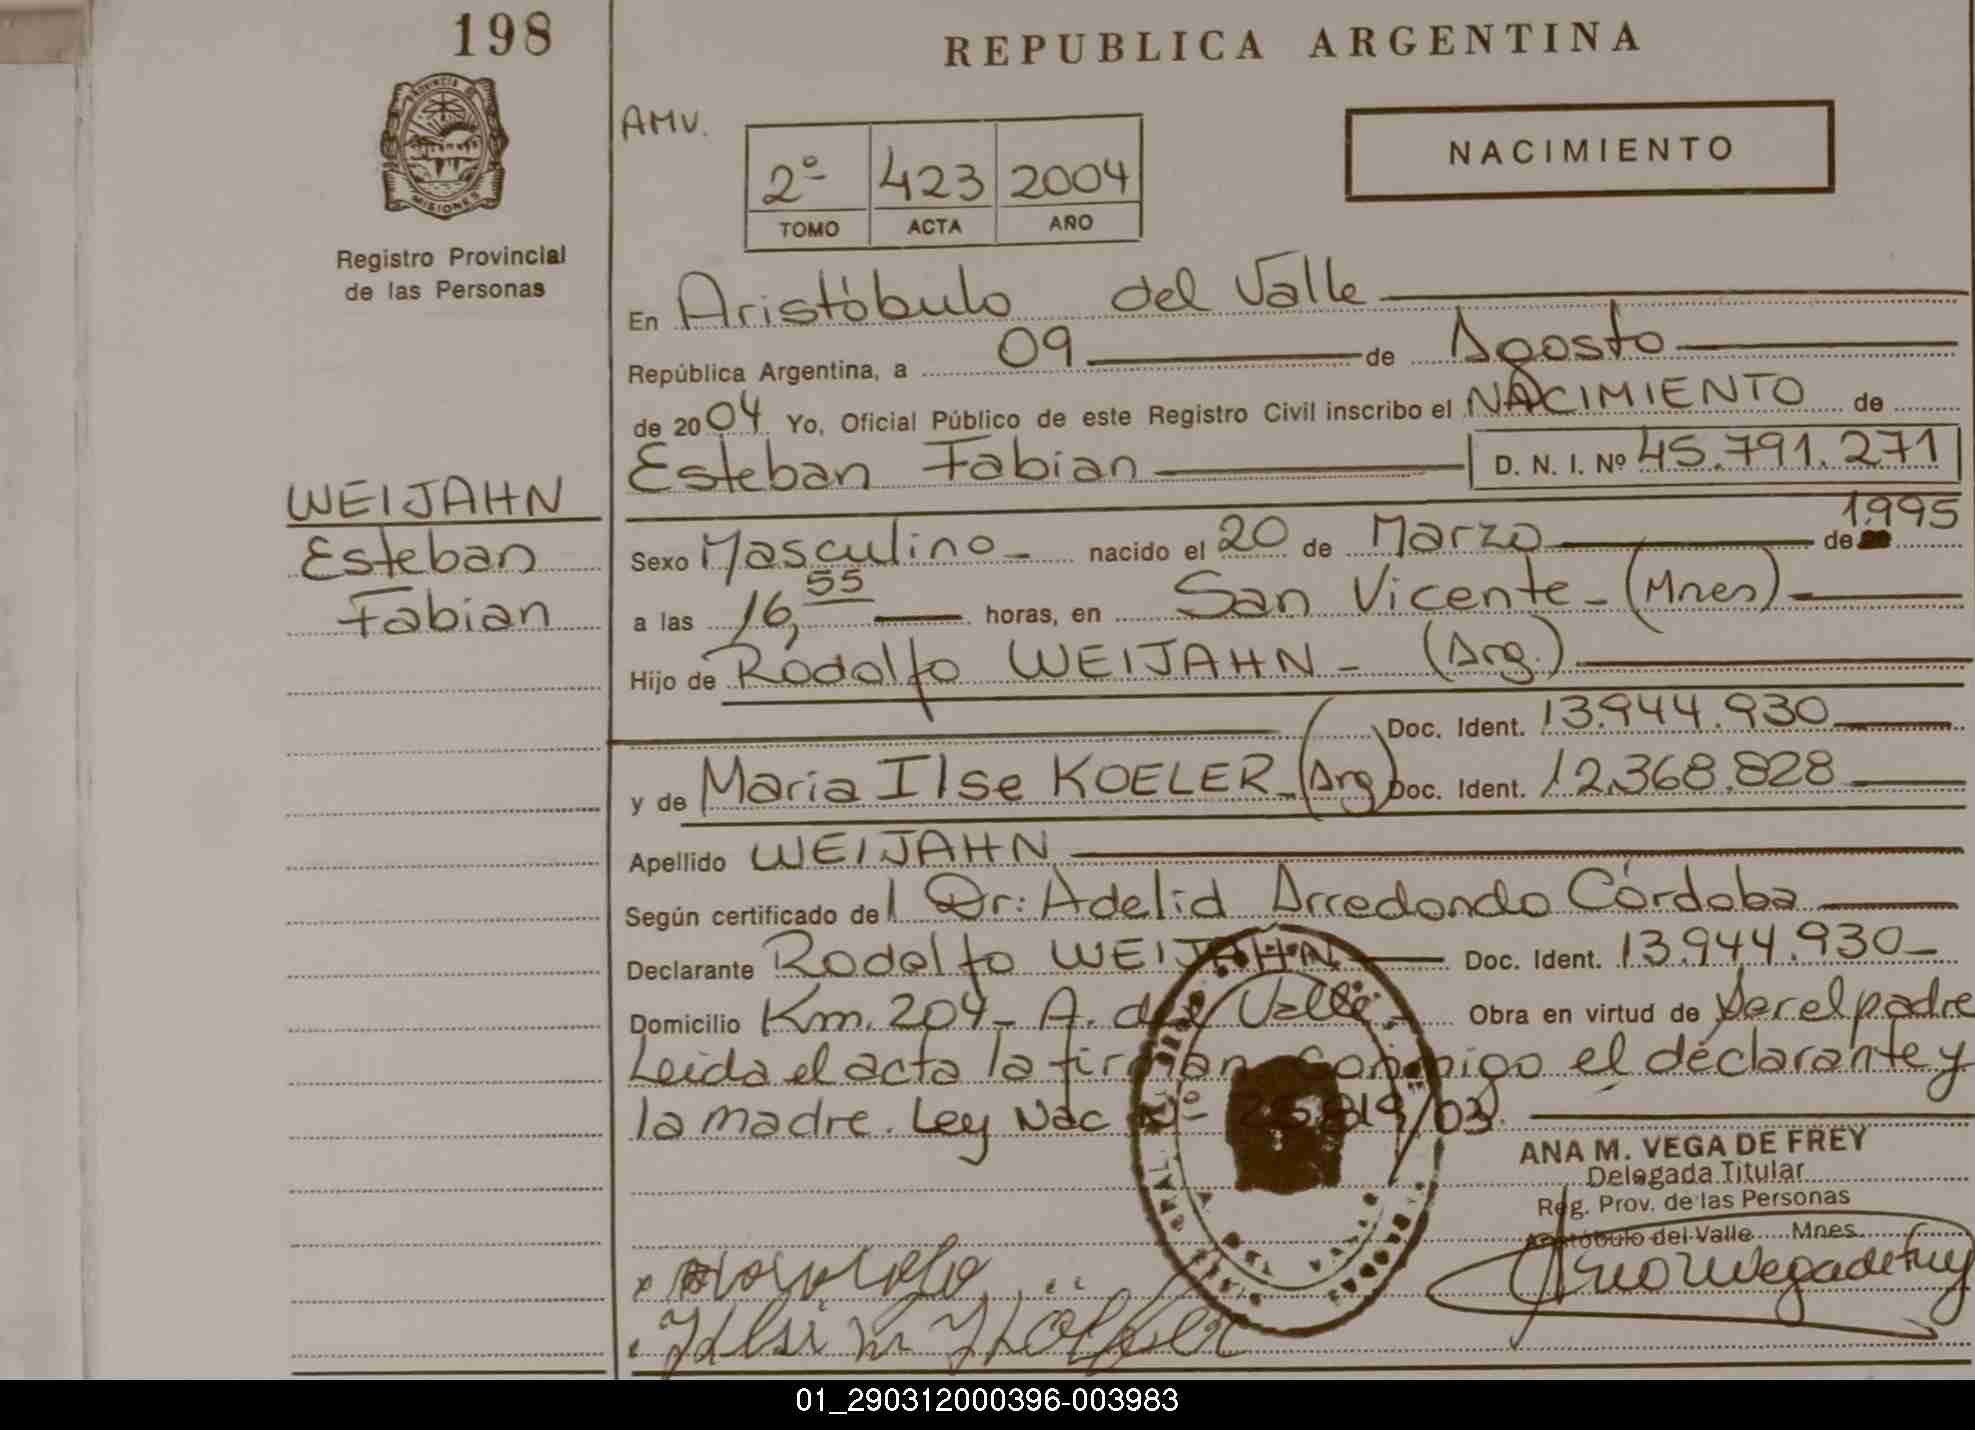 198
REPUBLICA ARGENTINA
PROVINCIA DE
MISIONES
Registro Provincial
de las Personas
AMV.
2º 423 2004
TOMO ACTA AÑO
NACIMIENTO
En Aristóbulo del Valle
República Argentina, a 09 de Agosto
de 2004 Yo, Oficial Público de este Registro Civil inscribo el NACIMIENTO de
Esteban Fabian D. N. I. Nº 45.791.271
WEIJAHN
Esteban
Fabian
Sexo Masculino nacido el 20 de Marzo de 1.995
a las 16,55 horas, en San Vicente - (Mnes)
Hijo de Rodolfo WEIJAHN - (Arg.)
Doc. Ident. 13.944.930
y de Maria Ilse KOELER - (Arg) Doc. Ident. 12.368.828
Apellido WEIJAHN
Según certificado del Dr: Adelid Arredondo Córdoba
Declarante Rodolfo WEIJAHN Doc. Ident. 13.944.930-
Domicilio Km. 204 - A. del Valle - Obra en virtud de ser el padre
Leida el acta la firman conmigo el declarante y
la madre. Ley Nac Nº 25.819/03.
ANA M. VEGA DE FREY
Delegada Titular
Reg. Prov. de las Personas
Aristóbulo del Valle Mnes.
Ana M Vega de Frey
01_290312000396-003983